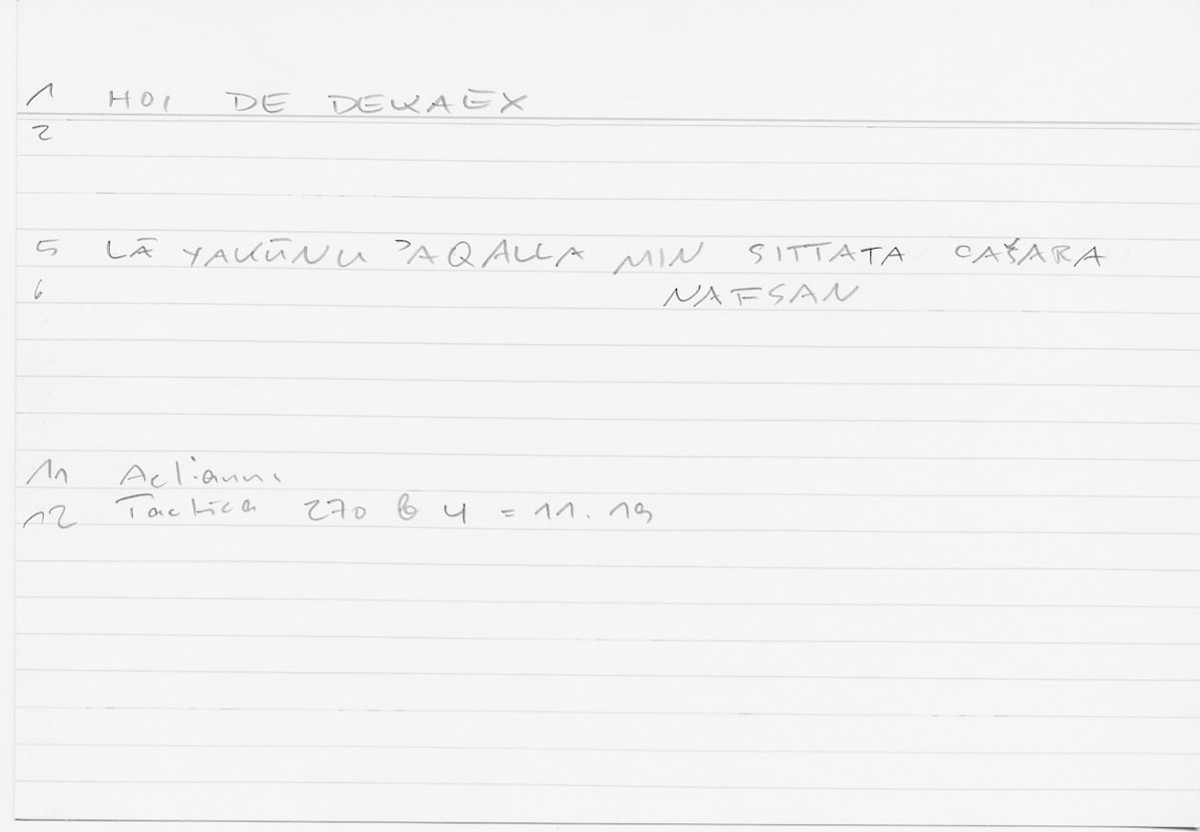 1 HOI DE DEKAĒX
2
5 LĀ YAKŪNU ʾAQALLA MIN SITTATA CAŠARA
6 NAFSAN
11 Aeliani
12 Tactica 270 b 4 = 11.19